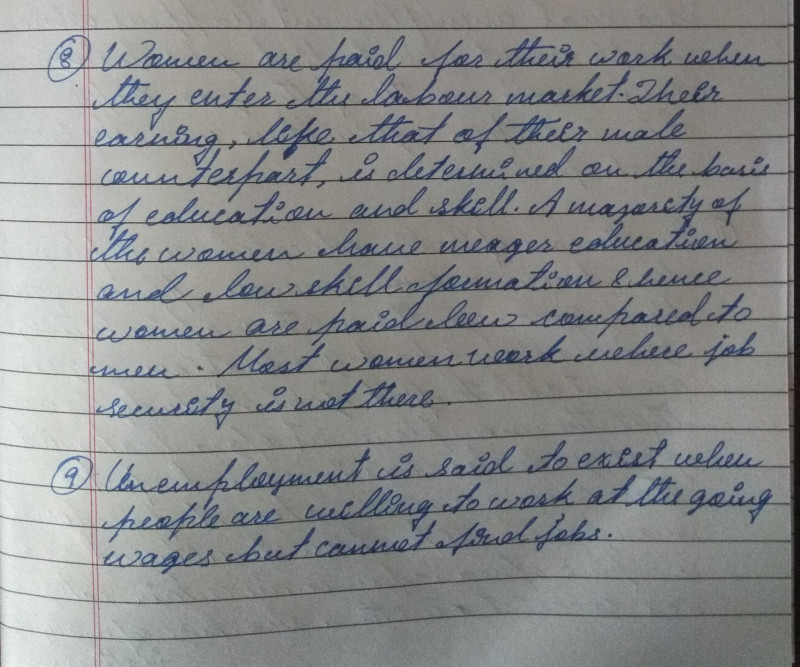 8 Women are paid for their work when
they enter the labour market. Their
earning, like that of their male
counterpart, is determined on the basis
of education and skill. A majority of
the women have meager education
and low skill formation & hence
women are paid low compared to
men. Most women work where job
security is not there.
9 Unemployment is said to exist when
people are willing to work at the going
wages but cannot find jobs.